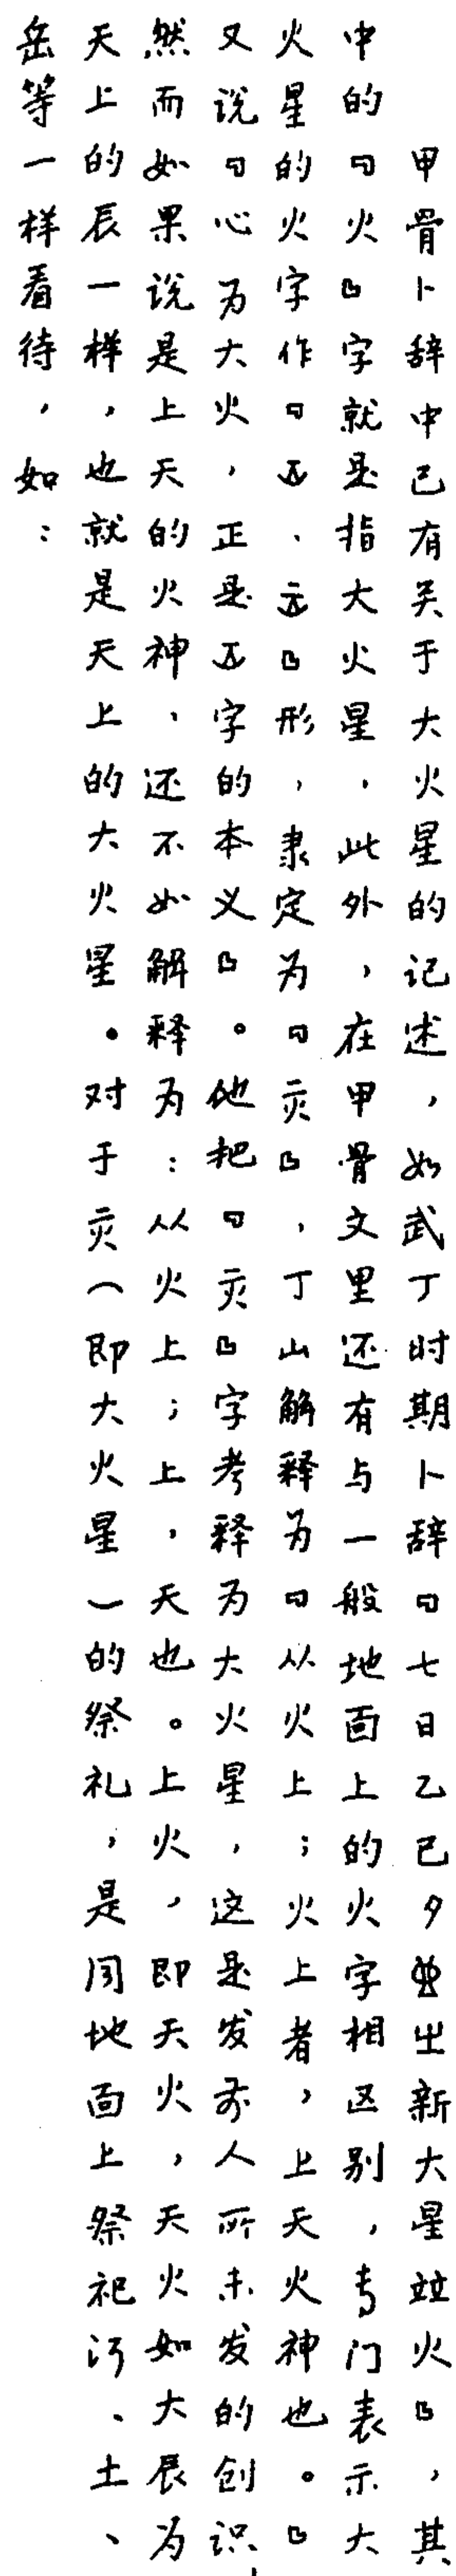 甲骨卜辞中已有关于大火星的记述，如武丁时期卜辞﹁七日乙巳夕出新大星竝火﹂，其
中的﹁火﹂字就是指大火星，此外，在甲骨文里还有与一般地面上的火字相区别，专门表示大
火星的火字作﹁、﹂形，隶定为﹁﹂，丁山解释为﹁从火上；火上者，上天火神也。﹂
又说﹁心为大火，正是字的本义﹂。他把﹁﹂字考释为大火星，这是发前人所未发的创识，
然而如果说是上天的火神，还不如解释为：从火上；上，天也。上火，即天火，天火如大辰为
天上的辰一样，也就是天上的大火星。对于（即大火星）的祭礼，是同地面上祭祀河、土、
岳等一样看待，如：